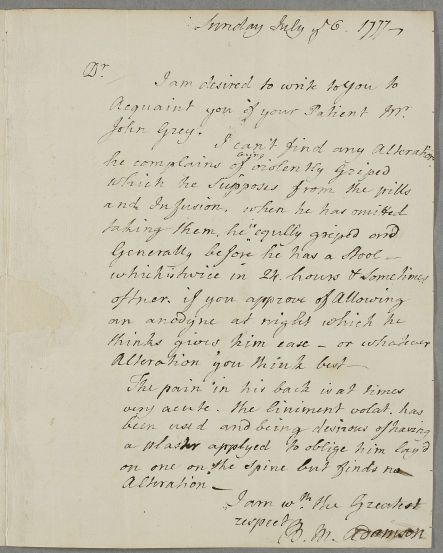 Sunday July ye 6. 1777
Dr.
I am desired to write to you to
Acquaint you of your Patient Mr.
John Grey. I can't find any Alteration
he complains of being violently Griped
which he Supposes from the pills
and Infusion, when he has omitted
taking them, he eqully griped and
Generally before he has a Stool —
which is twice in 24 hours & Sometimes
oftner. if you approve of Allowing
an anodyne at night which he
thinks gives him ease — or whatever
Alteration you think best —
The pain in his back is at times
very acute. the liniment volat. has
been used and being desirous of having
a plaster applyed to oblige him layd
on one on the Spine but finds no
Alteration —
I am wth the Greatest
respect
M. Adamson